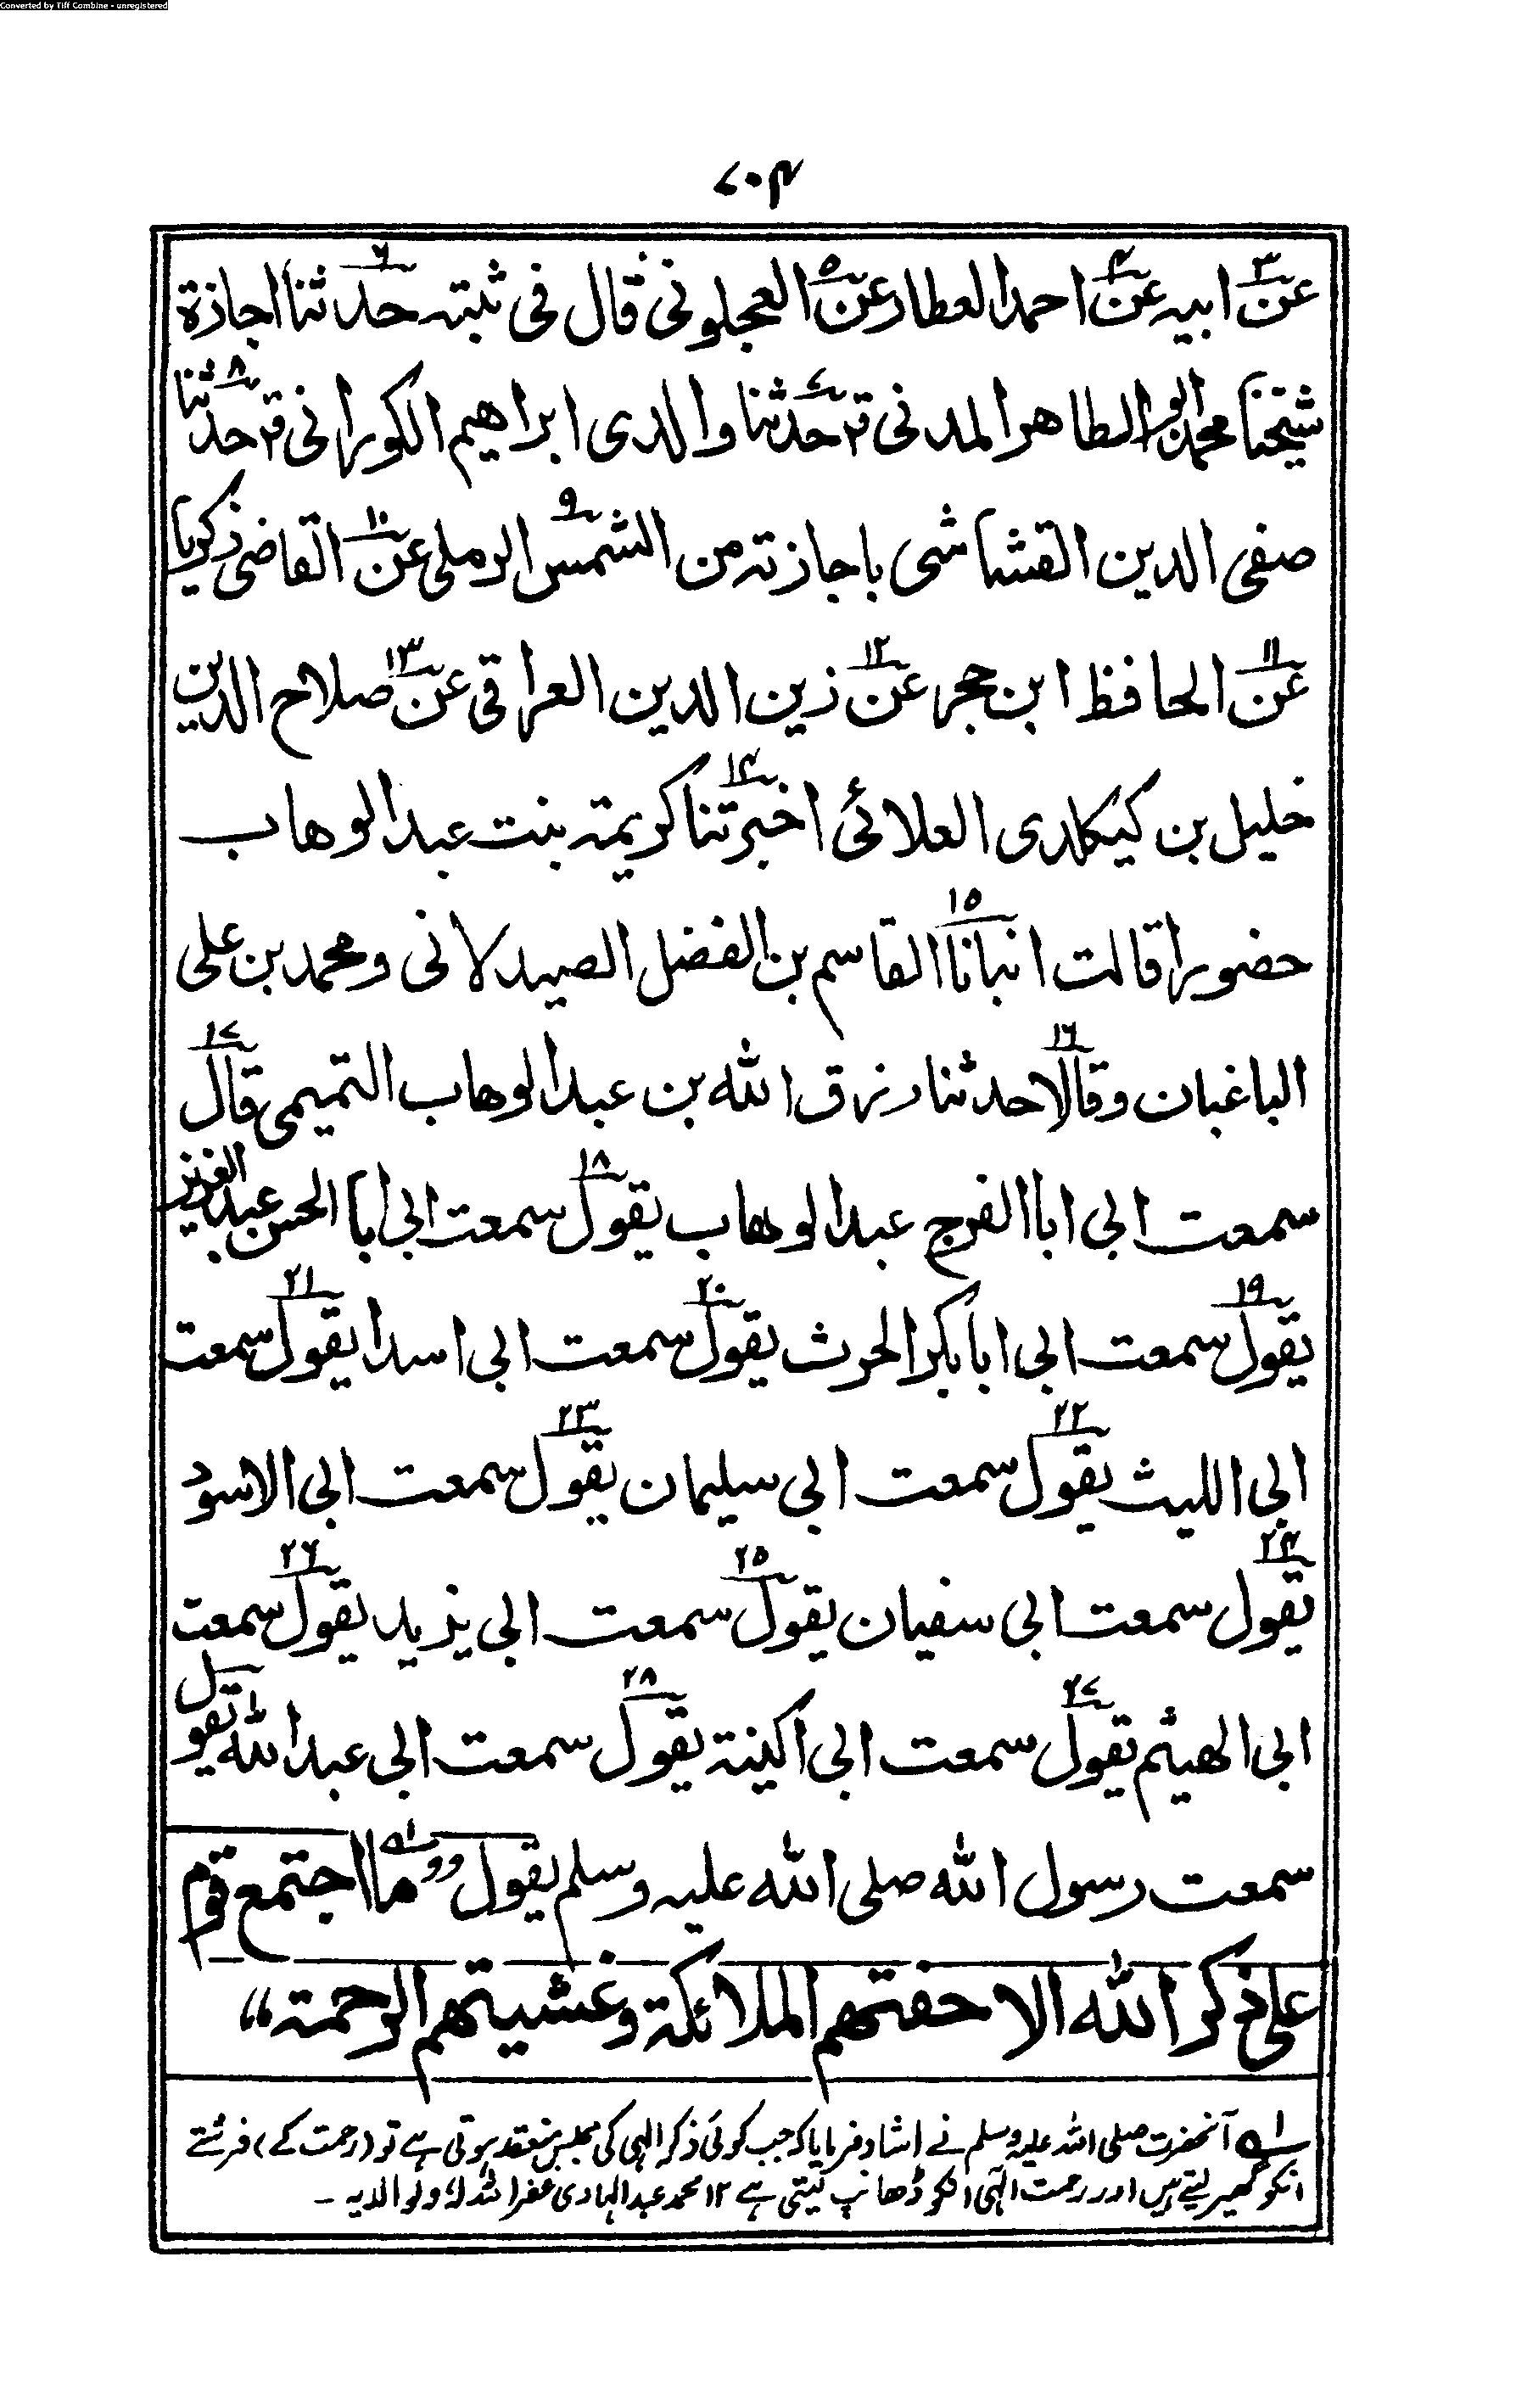 Converted by Tiff Combine - unregistered
۷۰۴
عن۳ ابیہ عن۴ احمد العطار عن۵ العجلونی قال فی ثبتہ حدثنا۶ اجازة
شیخنا محمد ابو الطاهر المدنی قم حدثنا۷ والدی ابراهیم الکورانی قم حدثنا۸
صفی الدین القشاشی باجازتہ من الشمس۹ الرملی عن۱۰ القاضی زکریا
عن۱۱ الحافظ ابن حجر عن۱۲ زین الدین العراقی عن۱۳ صلاح الدین
خلیل بن کیکلدی العلائی اخبرتنا۱۴ کریمة بنت عبد الوهاب
حضورا قالت انبانا۱۵ القاسم بن الفضل الصیدلانی ومحمد بن علی
الباغبان وقالا حدثنا۱۶ رزق الله بن عبد الوهاب التمیمی قال۱۷
سمعت ابی ابا الفرج عبد الوهاب یقول۱۸ سمعت ابی ابا الحسن عبد العزیز
یقول۱۹ سمعت ابی ابابکر الحرث یقول۲۰ سمعت ابی اسدا یقول۲۱ سمعت
ابی اللیث یقول۲۲ سمعت ابی سلیمان یقول۲۳ سمعت ابی الاسود
یقول۲۴ سمعت ابی سفیان یقول۲۵ سمعت ابی یزید یقول۲۶ سمعت
ابی الهیثم یقول۲۷ سمعت ابی اکینة یقول۲۸ سمعت ابی عبد الله یقول
سمعت رسول الله صلی الله علیہ وسلم یقول ”ما۱ اجتمع قوم
علی ذکر الله الا حفتهم الملائکة وغشیتهم الرحمة“
۱؎ آنحضرت صلی اللہ علیہ وسلم نے ارشاد فرمایا کہ جب کوئی ذکر الہی کی مجلس منعقد ہوتی ہے تو (رحمت کے) فرشتے
انکو گھیر لیتے ہیں اور رحمت الٰہی انکو ڈھانپ لیتی ہے ۱۲ محمد عبد الہادی غفر اللہ لہ ولوالدیہ ۔